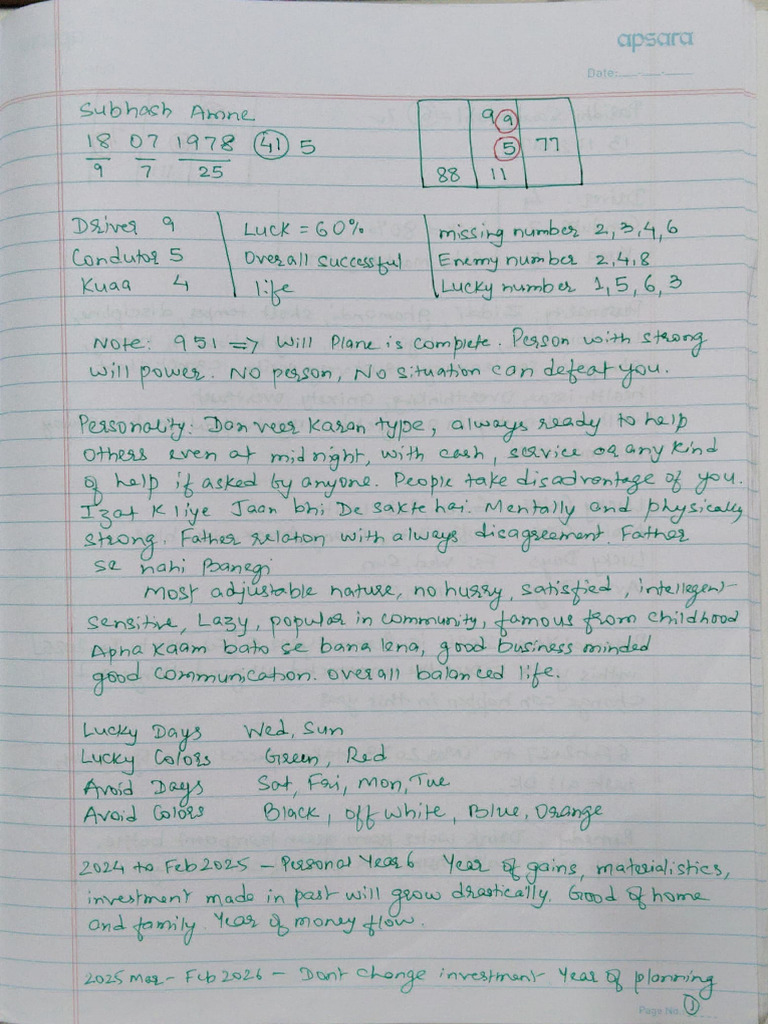 apsara
Date:
Subhash Amne
18 07 1978 41 5
9 7 25
9 9
5 77
88 11
Driver 9 Luck = 60% missing number 2, 3, 4, 6
Condutor 5 Overall successful Enemy number 2, 4, 8
Kuaa 4 life Lucky number 1, 5, 6, 3
Note: 951 => Will Plane is complete. Person with strong
will power. No person, No situation can defeat you.
Personality: Dan veer Karan type, always ready to help
others even at mid night, with cash, service or any kind
of help if asked by anyone. People take disadvantage of you.
Izat K liye Jaan bhi De sakte hai. Mentally and physically
strong. Father relation with always disagreement. Father
se nahi Banegi
Most adjustable nature, no hurry, satisfied, intellegent
sensitive, Lazy, popular in community, famous from childhood
Apna Kaam bato se bana lena, good business minded
good communication. overall balanced life.
Lucky Days Wed, Sun
Lucky Colors Green, Red
Avoid Days Sat, Fri, Mon, Tue
Avoid Colors Black, off white, Blue, Orange
2024 to Feb 2025 - Personal Year 6 Year of gains, materialistics,
investment made in past will grow drastically. Good of home
and family. Year of money flow.
2025 Mar - Feb 2026 - Dont change investment Year of planning
Page No.: 1